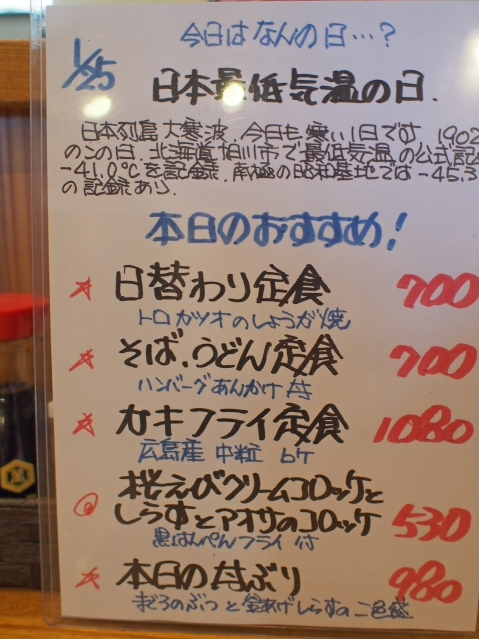 今日はなんの日…?
1/25
日本最低気温の日.
日本列島大寒波.今日も寒い1日です.1902
のこの日.北海道旭川市で最低気温の公式記
-41.0℃を記録.南極の昭和基地では-45.3
の記録あり.
本日のおすすめ!
☆日替わり定食 700
トロカツオのしょうが焼
☆そば.うどん定食 700
ハンバーグあんかけ丼
☆カキフライ定食 1080
広島産 中粒 6ケ
◎桜えびクリームコロッケと
しらすとアオサのコロッケ 530
黒はんぺんフライ付
☆本日の丼ぶり 980
まぐろのぶつと釜あげしらすの二色盛